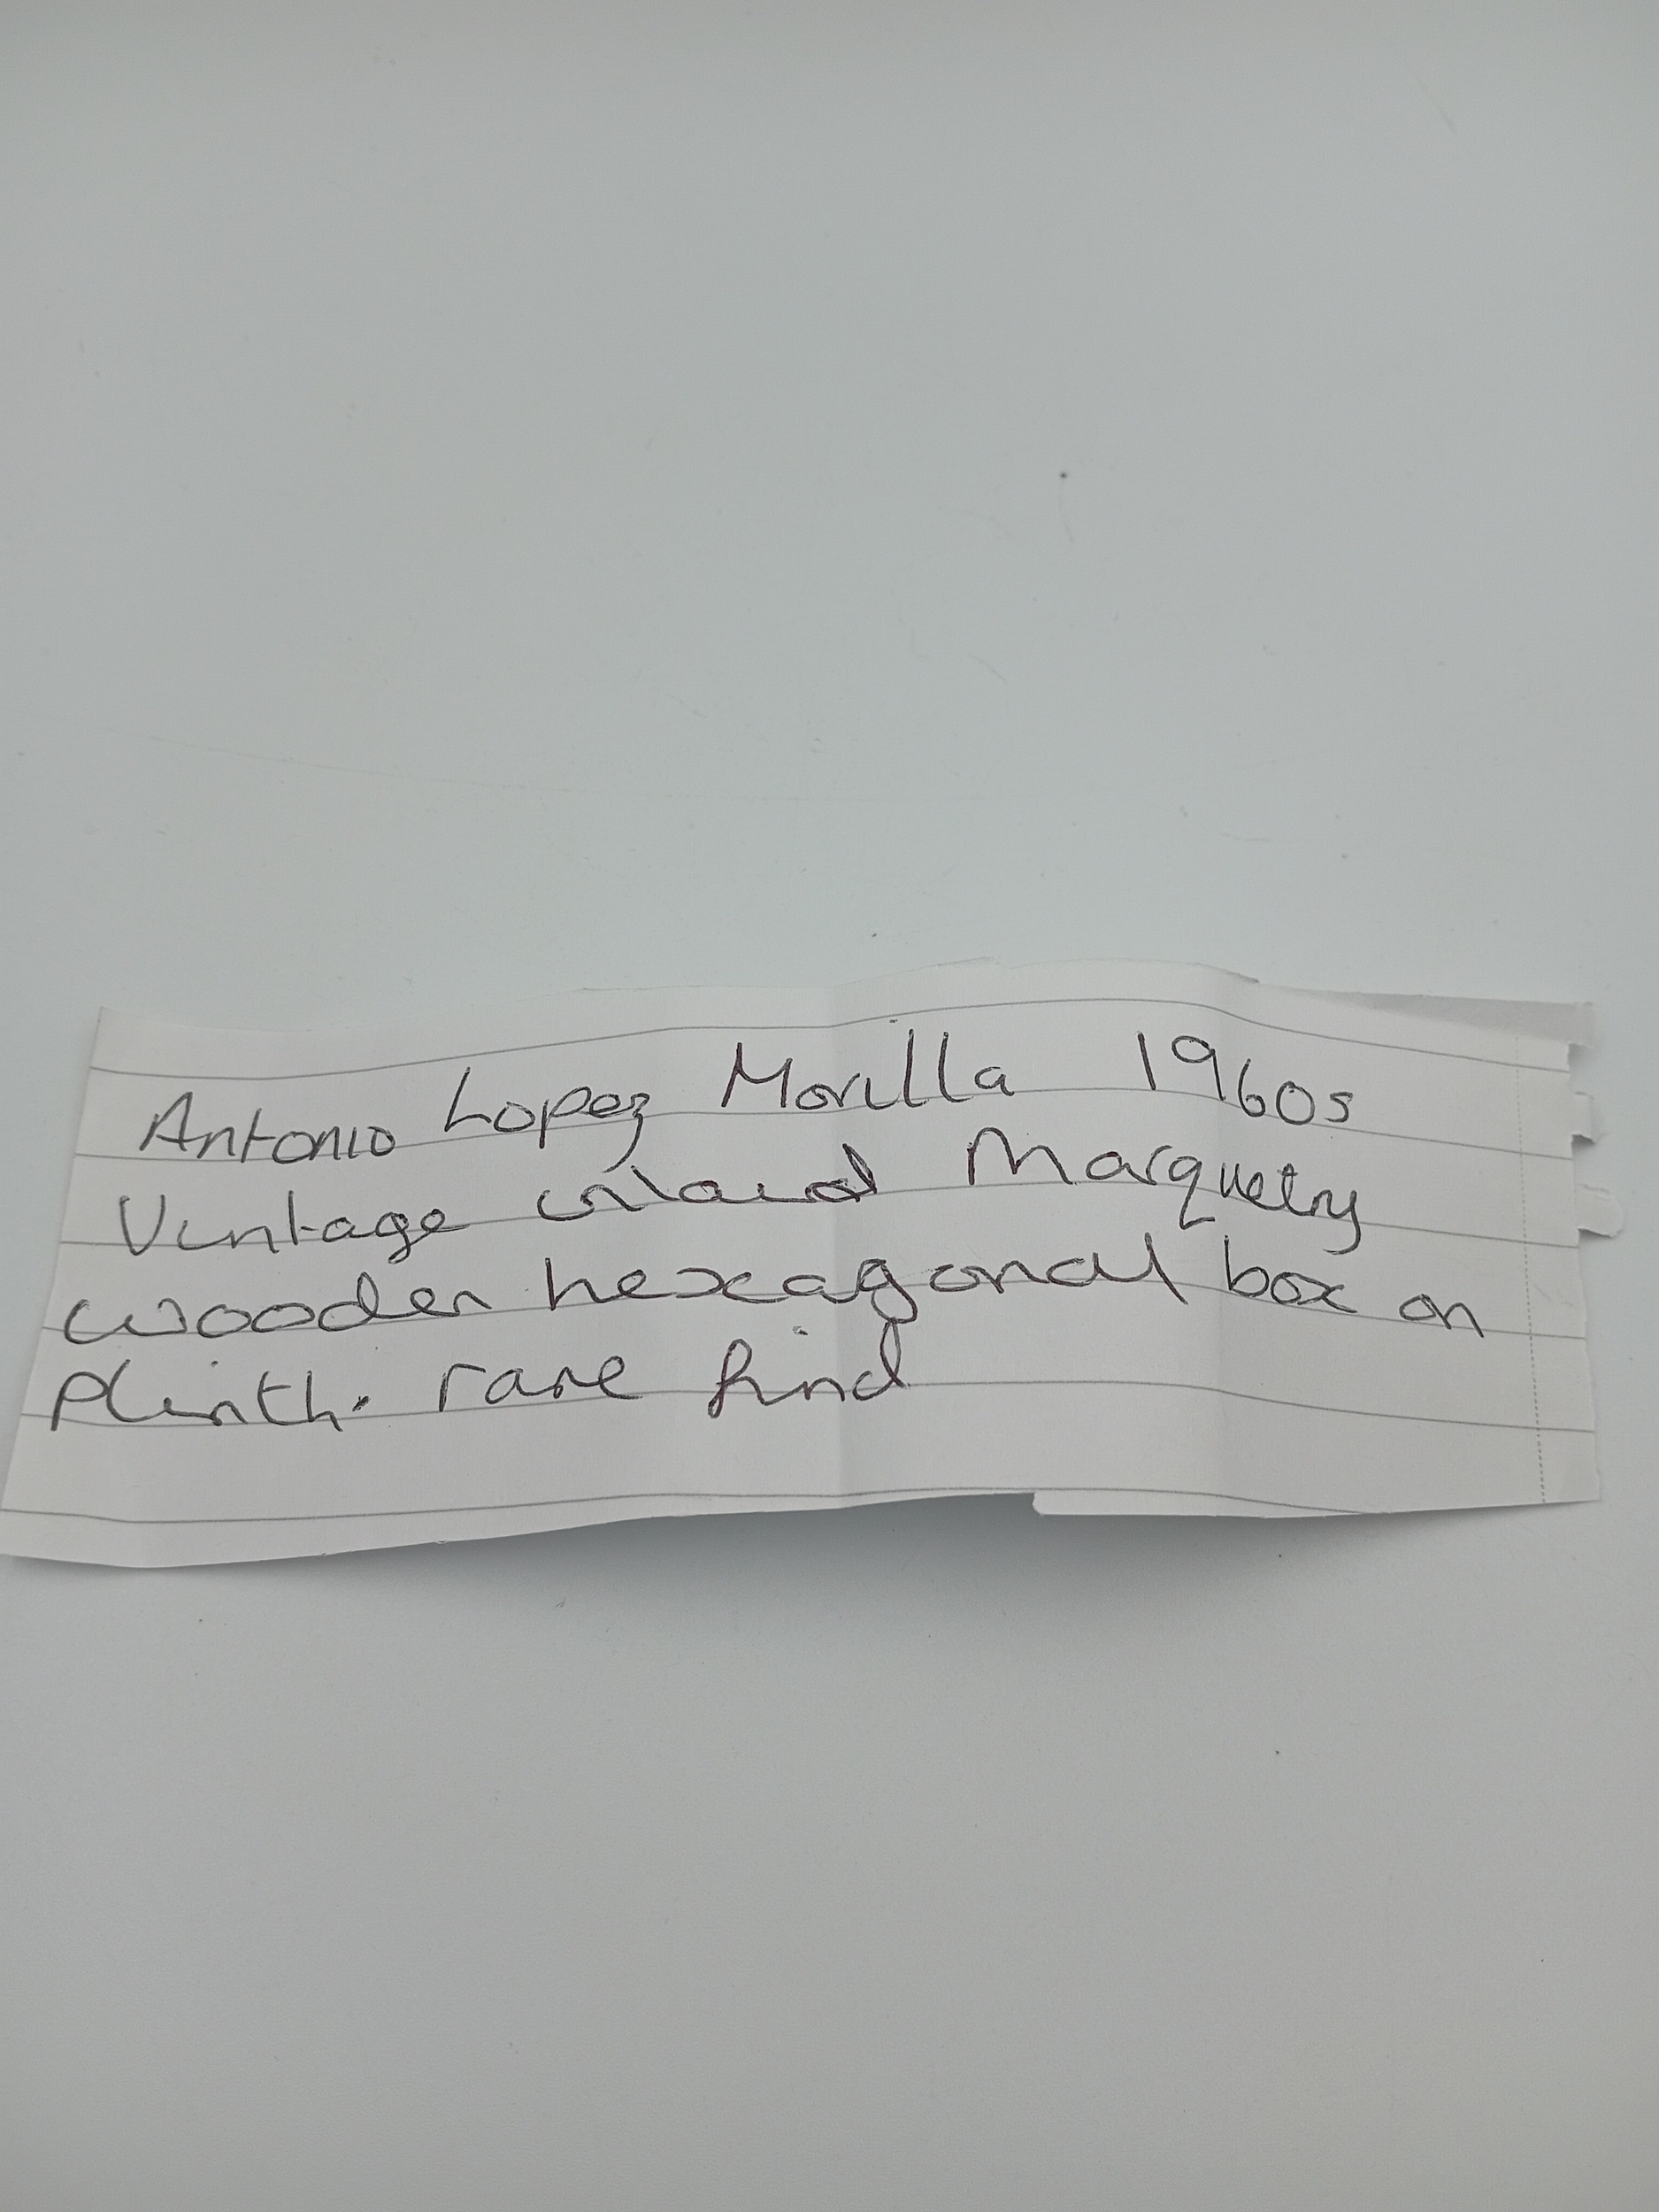 Antonio Lopez Morilla 1960s
Vintage inlaid Marquetry
wooden hexagonal box on
plinth. rare find